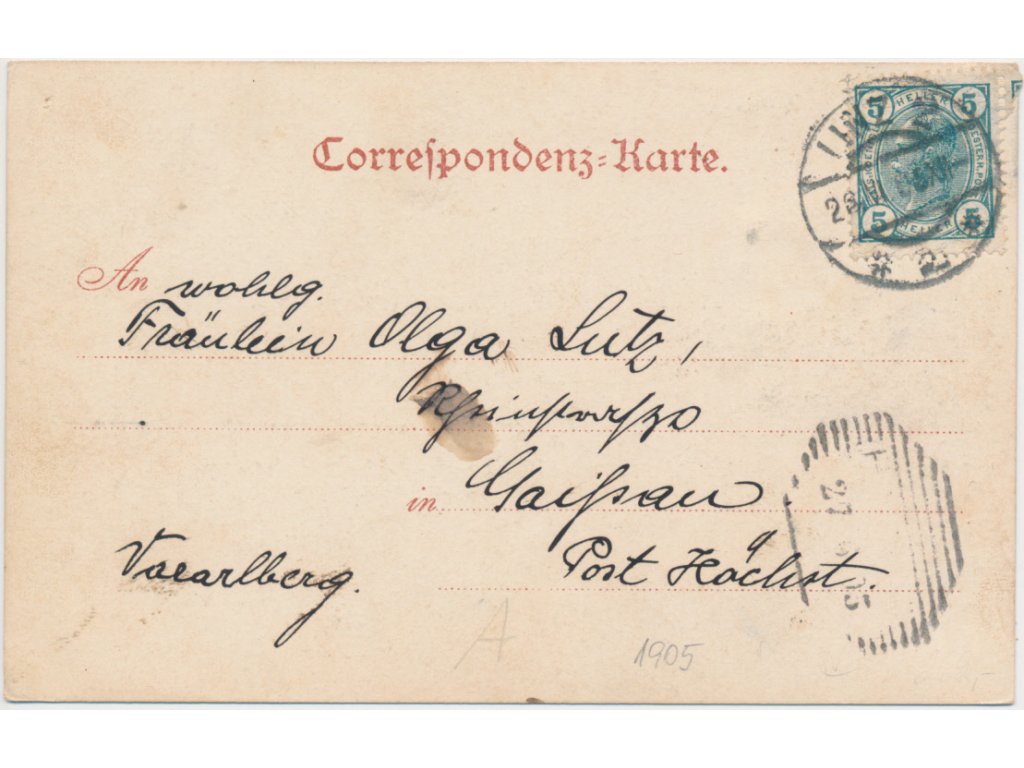 Correspondenz-Karte.
5 HELLER 5
5 HELLER 5
LINZ
An wohlg.
Fräulein Olga Lutz,
Rheinstrasse
in Gaißau
Post Höchst.
Vorarlberg.
27
05
A
1905